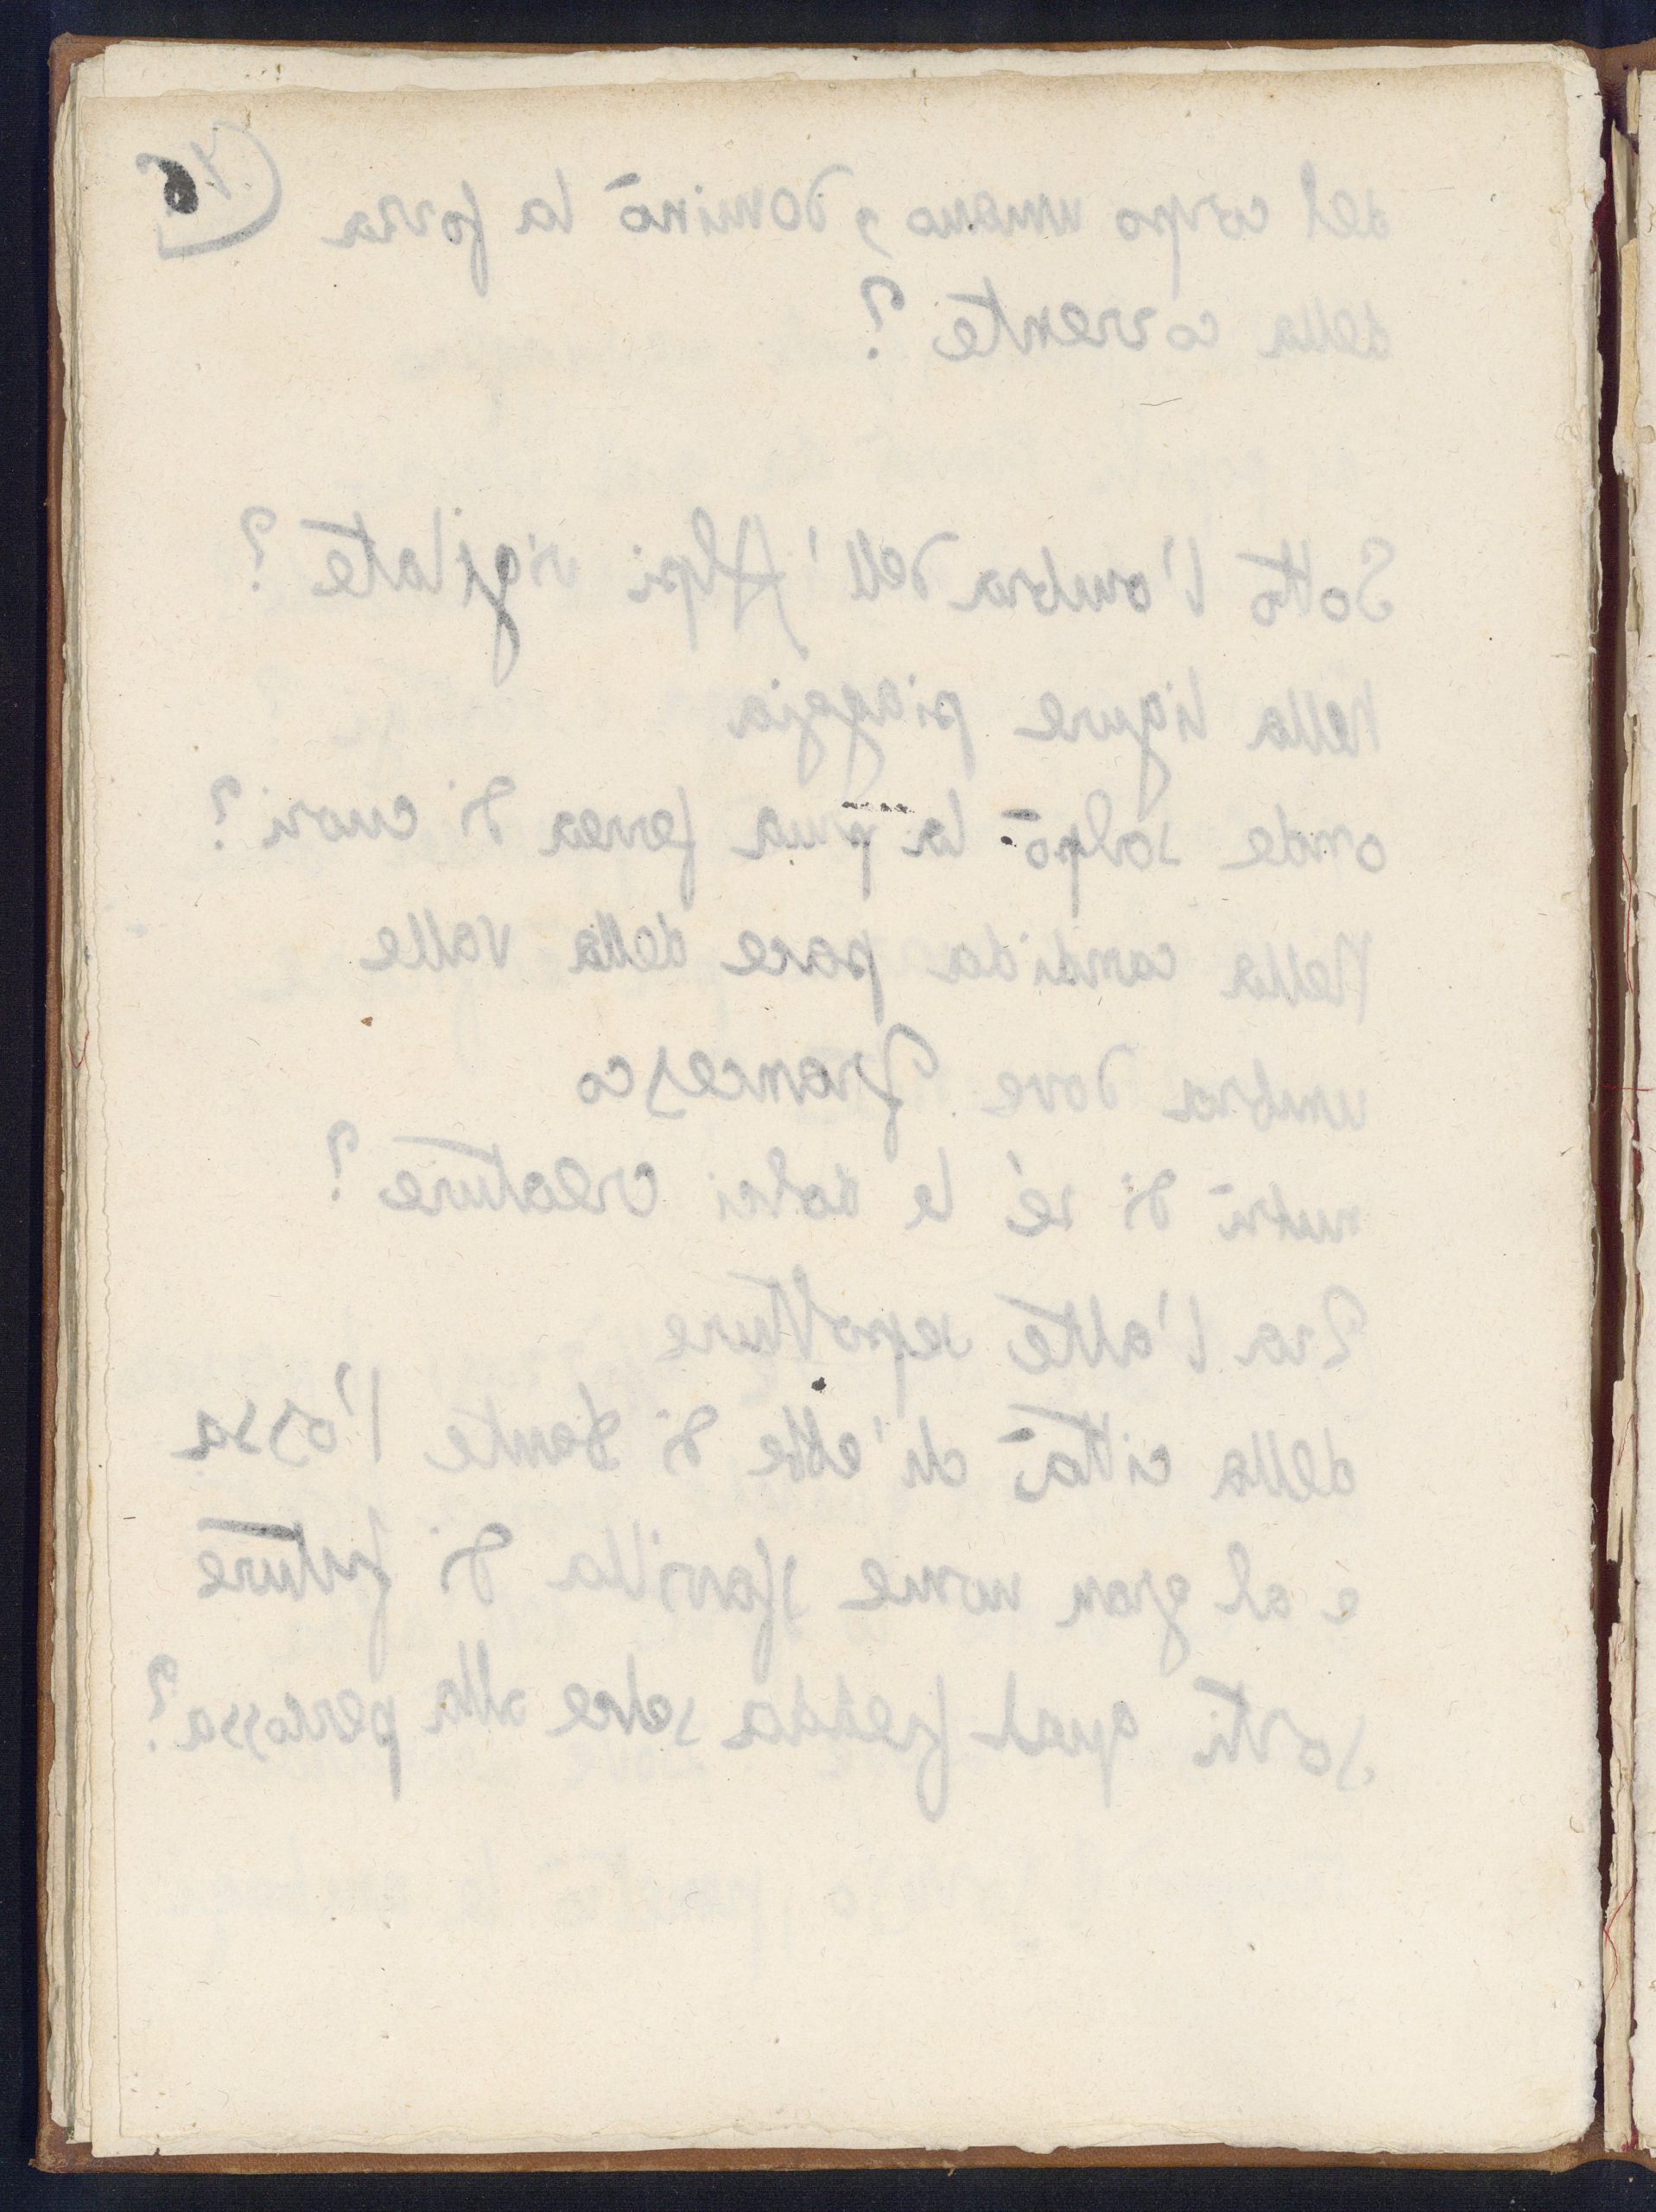 del corpo umano, dominò la forza
della corrente?
Sotto l'ombra dell'Alpi vigilate?
Nella ligure piaggia
onde salpò la prua ferrea di cuori?
Nella candida pace della valle
umbra dove Francesco
nutrì di sé le dolci creature?
Tra l'alte sepolture
della città ch'ebbe di Dante l'ossa
e al gran nome sfavilla di future
sorti qual fredda selce alla percossa?